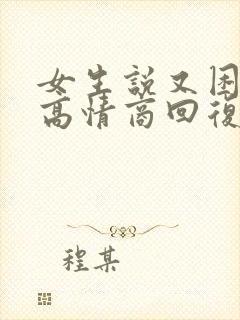 女生說又困
高情商回復
程某